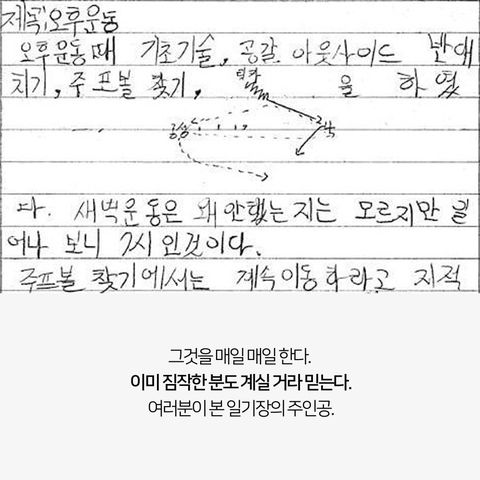 제목:오후운동
오후운동때 기초기술, 공갈 아웃사이드 반대
치기, 주프볼 찾기, 을 하였
다. 새벽운동은 왜 안했는지는 모르지만 일
어나 보니 7시 인것이다.
주프볼 찾기에서는 계속이동하라고 지적
그것을 매일 매일 한다.
이미 짐작한 분도 계실 거라 믿는다.
여러분이 본 일기장의 주인공.